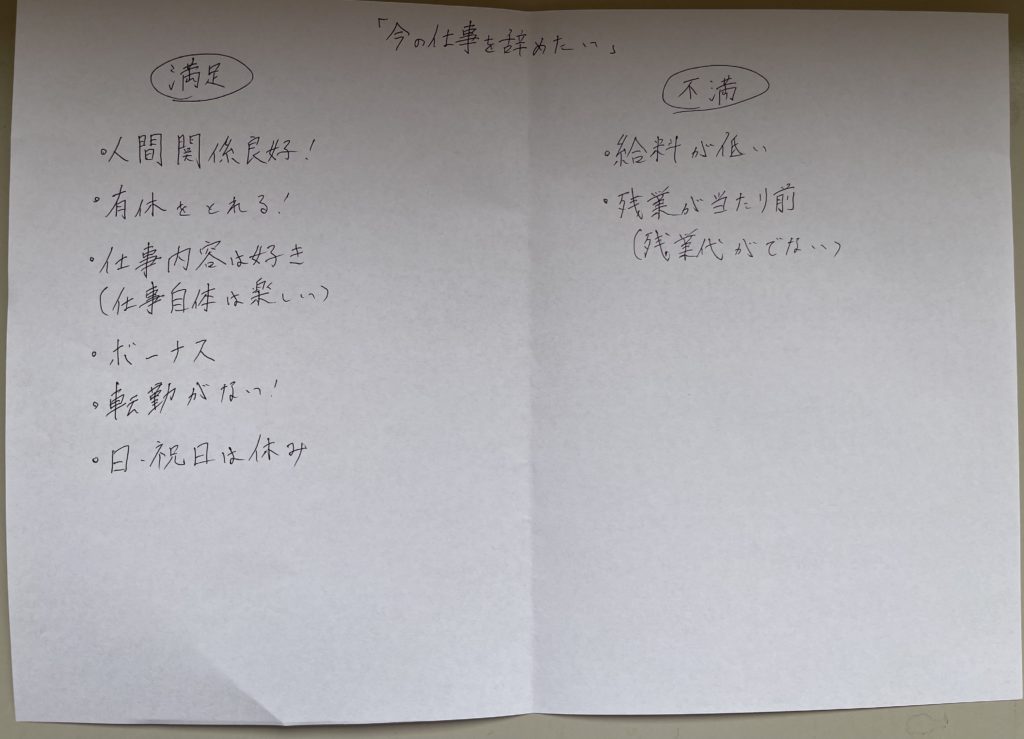 「今の仕事を辞めたい」
満足
・人間関係良好!
・有休をとれる!
・仕事内容は好き
(仕事自体は楽しい)
・ボーナス
・転勤がない!
・日・祝日は休み
不満
・給料が低い
・残業が当たり前
(残業代がでない)